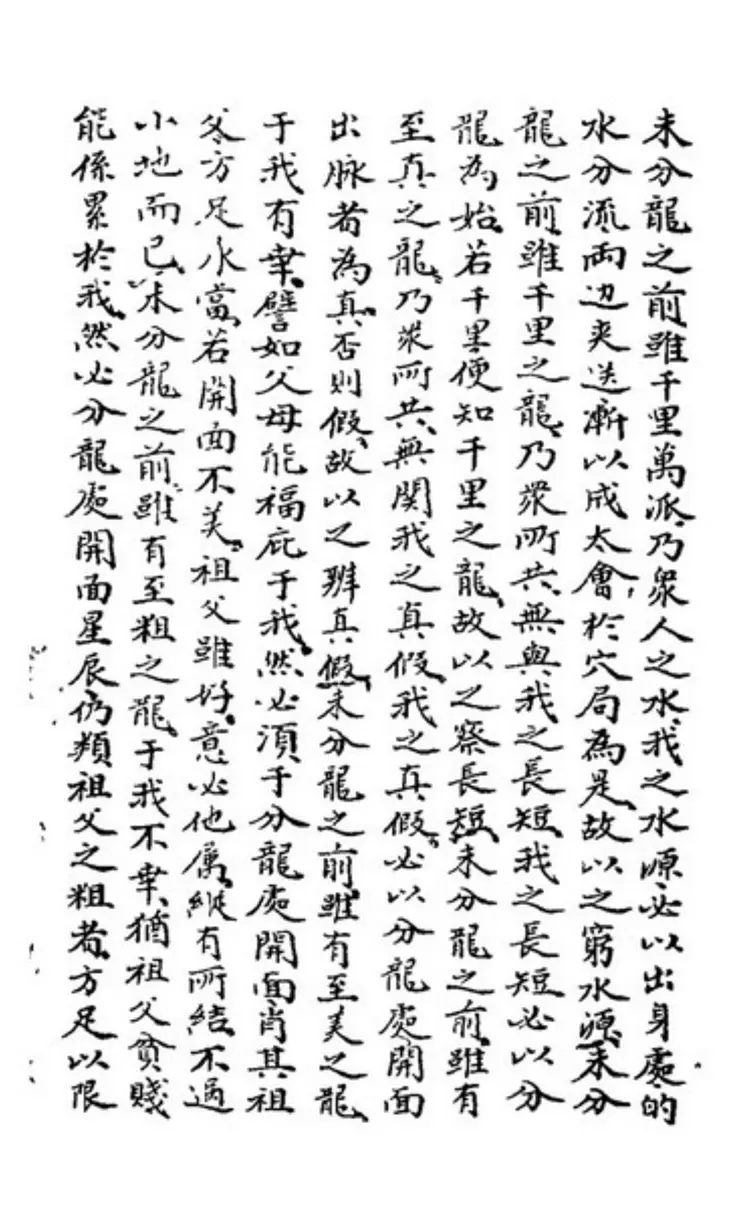 未分龍之前雖千里萬派乃衆人之水我之水源必以出身處的
水分流両边夹送漸以成太會於穴局為是故以之窮水源未分
龍之前雖千里之龍乃衆所共無與我之長短我之長短必以分
龍為始若千里便知千里之龍故以之察長短未分龍之前雖有
至真之龍乃衆所共無関我之真假我之真假必以分龍處開面
出脉者為真否則假故以之辨真假未分龍之前雖有至美之龍
于我有幸譬如父母能福庇于我然必須于分龍處開面肖其祖
父方足水當若開面不美祖父雖好意必他属縱有所結不過
小地而已未分龍之前雖有至粗之龍于我不幸猶祖父貧賤
能係累於我然必分龍處開面星辰仍類祖父之粗者方足以限